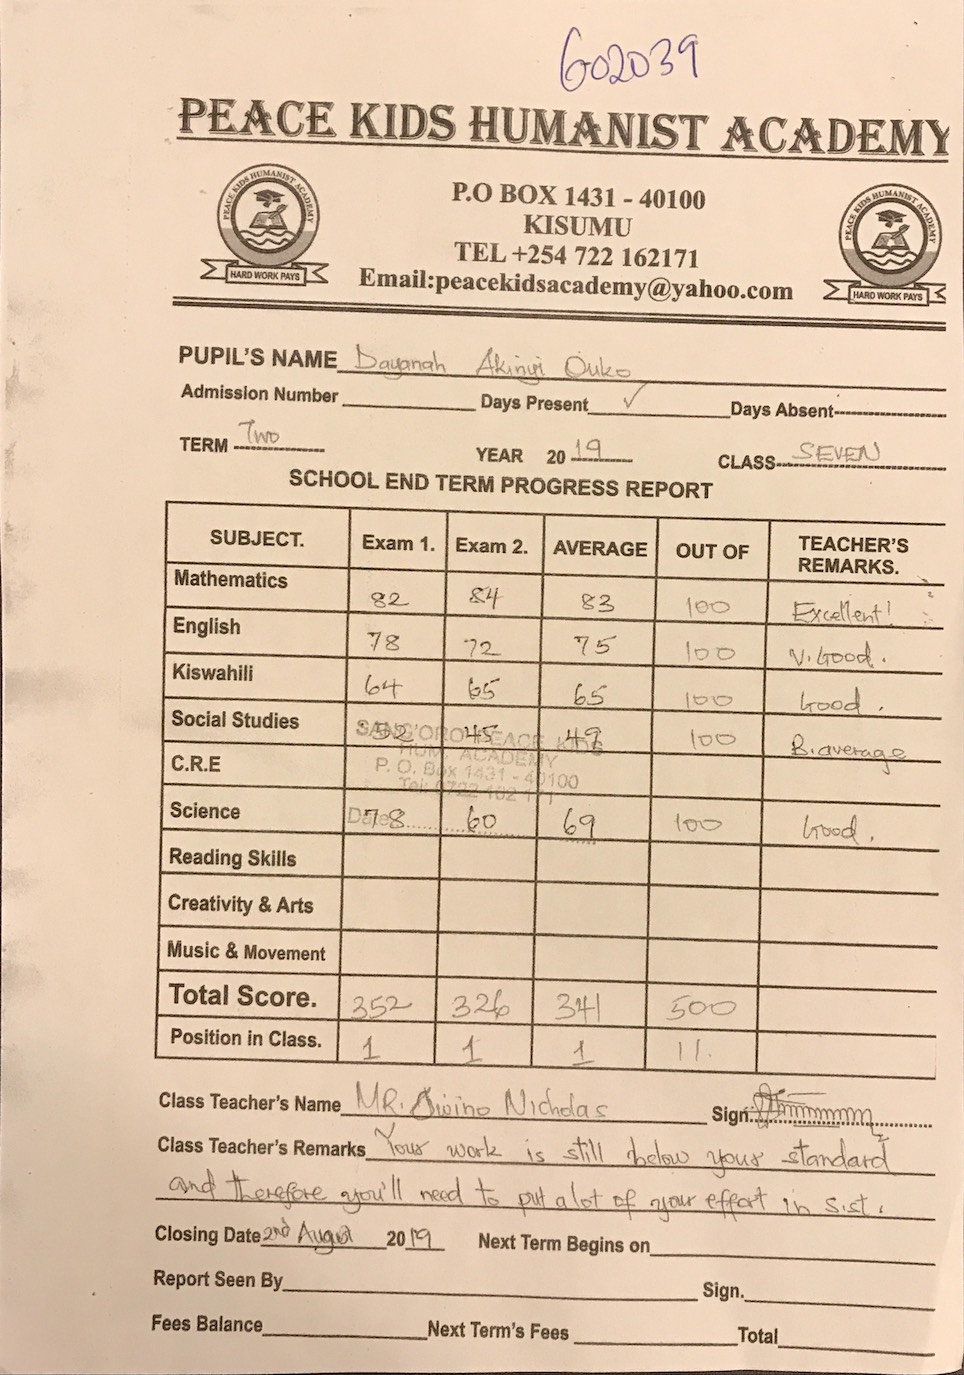 G02039
PEACE KIDS HUMANIST ACADEMY
PEACE KIDS HUMANIST ACADEMY
HARD WORK PAYS
P.O BOX 1431 - 40100
KISUMU
TEL +254 722 162171
Email:peacekidsacademy@yahoo.com
PEACE KIDS HUMANIST ACADEMY
HARD WORK PAYS
PUPIL'S NAME Dayanah Akinyi Ouko
Admission Number Days Present ✓ Days Absent
TERM Two YEAR 2019 CLASS SEVEN
SCHOOL END TERM PROGRESS REPORT
SUBJECT. Exam 1. Exam 2. AVERAGE OUT OF TEACHER'S REMARKS.
Mathematics 82 84 83 100 Excellent!
English 78 72 75 100 V. Good.
Kiswahili 64 65 65 100 Good.
Social Studies 52 45 49 100 B. average
C.R.E
SANG'ORO PEACE KIDS
HUM. ACADEMY
P. O. Box 1431 - 40100
Tel: 0722 162 171
Date
Science 78 60 69 100 Good.
Reading Skills
Creativity & Arts
Music & Movement
Total Score. 352 326 341 500
Position in Class. 1 1 1 11.
Class Teacher's Name MR. Owino Nicholas Sign:
Class Teacher's Remarks Your work is still below your standard
and therefore you'll need to put a lot of your effort in s.st.
Closing Date 2nd August 2019 Next Term Begins on
Report Seen By Sign.
Fees Balance Next Term's Fees Total